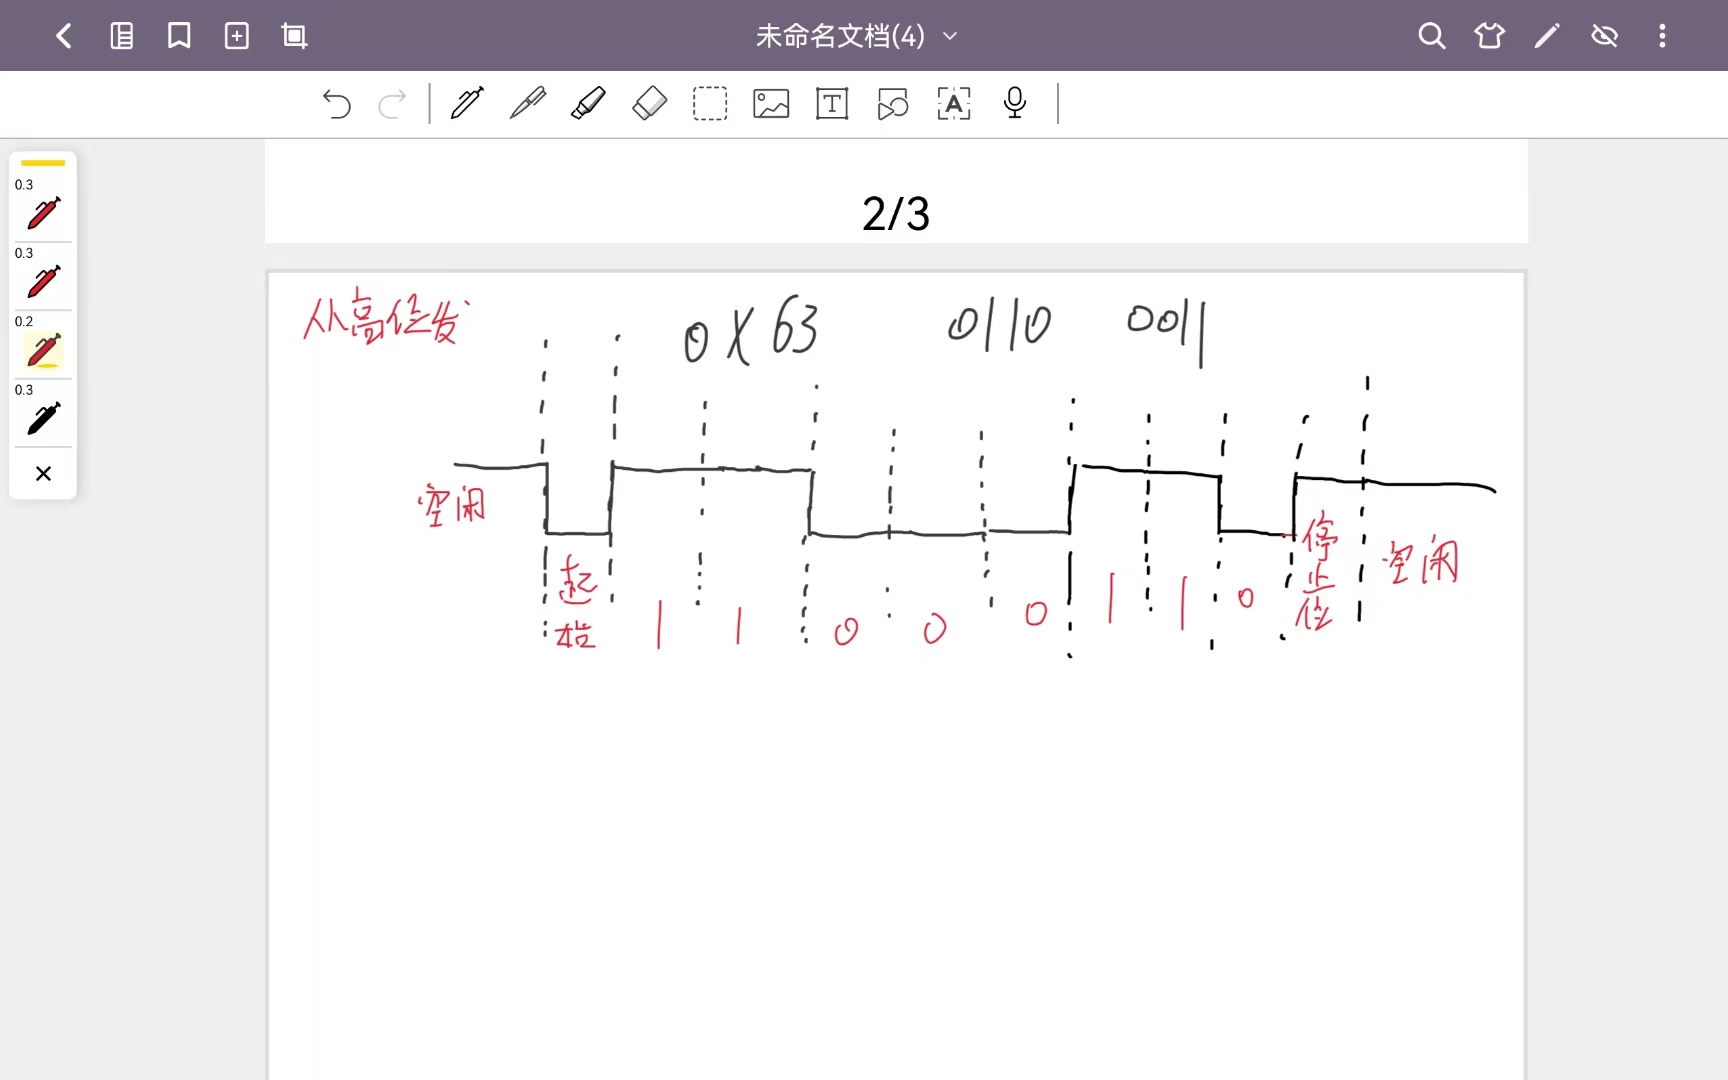 未命名文档(4)
0.3
0.3
0.2
0.3
2/3
从高位发
0X63 0110 0011
空闲
起始
1 1 0 0 0 1 1 0
停止位
空闲